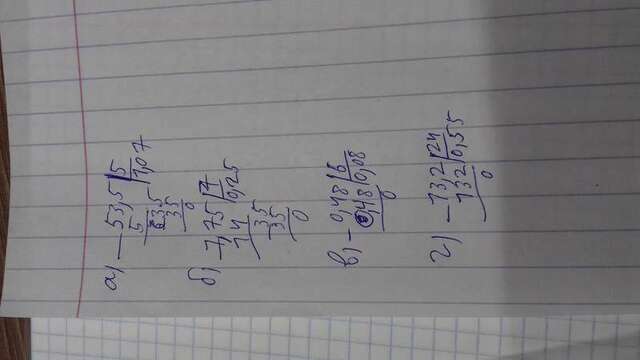 а) 53,5 | 5
5 1,07
035
35
0
б) 1,75 | 7
14 0,25
35
35
0
в) 0,48 | 6
0,48 0,08
0
г) 13,2 | 24
132 0,55
0